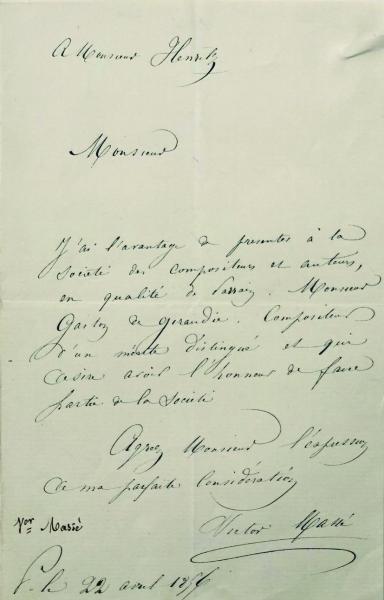 A Monsieur Henrik
Monsieur
J'ai l'avantage de presenter à la
Société des compositeurs et auteurs,
en qualité de Parrain. Monsieur
Gaston de Giraudie. Compositeur
d'un mérite distingué et qui
desire avoir l'honneur de faire
partie de la Société
Agréez Monsieur l'expression
de ma parfaite Considération
Victor Massé
Vor Massé
P. le 22 avril